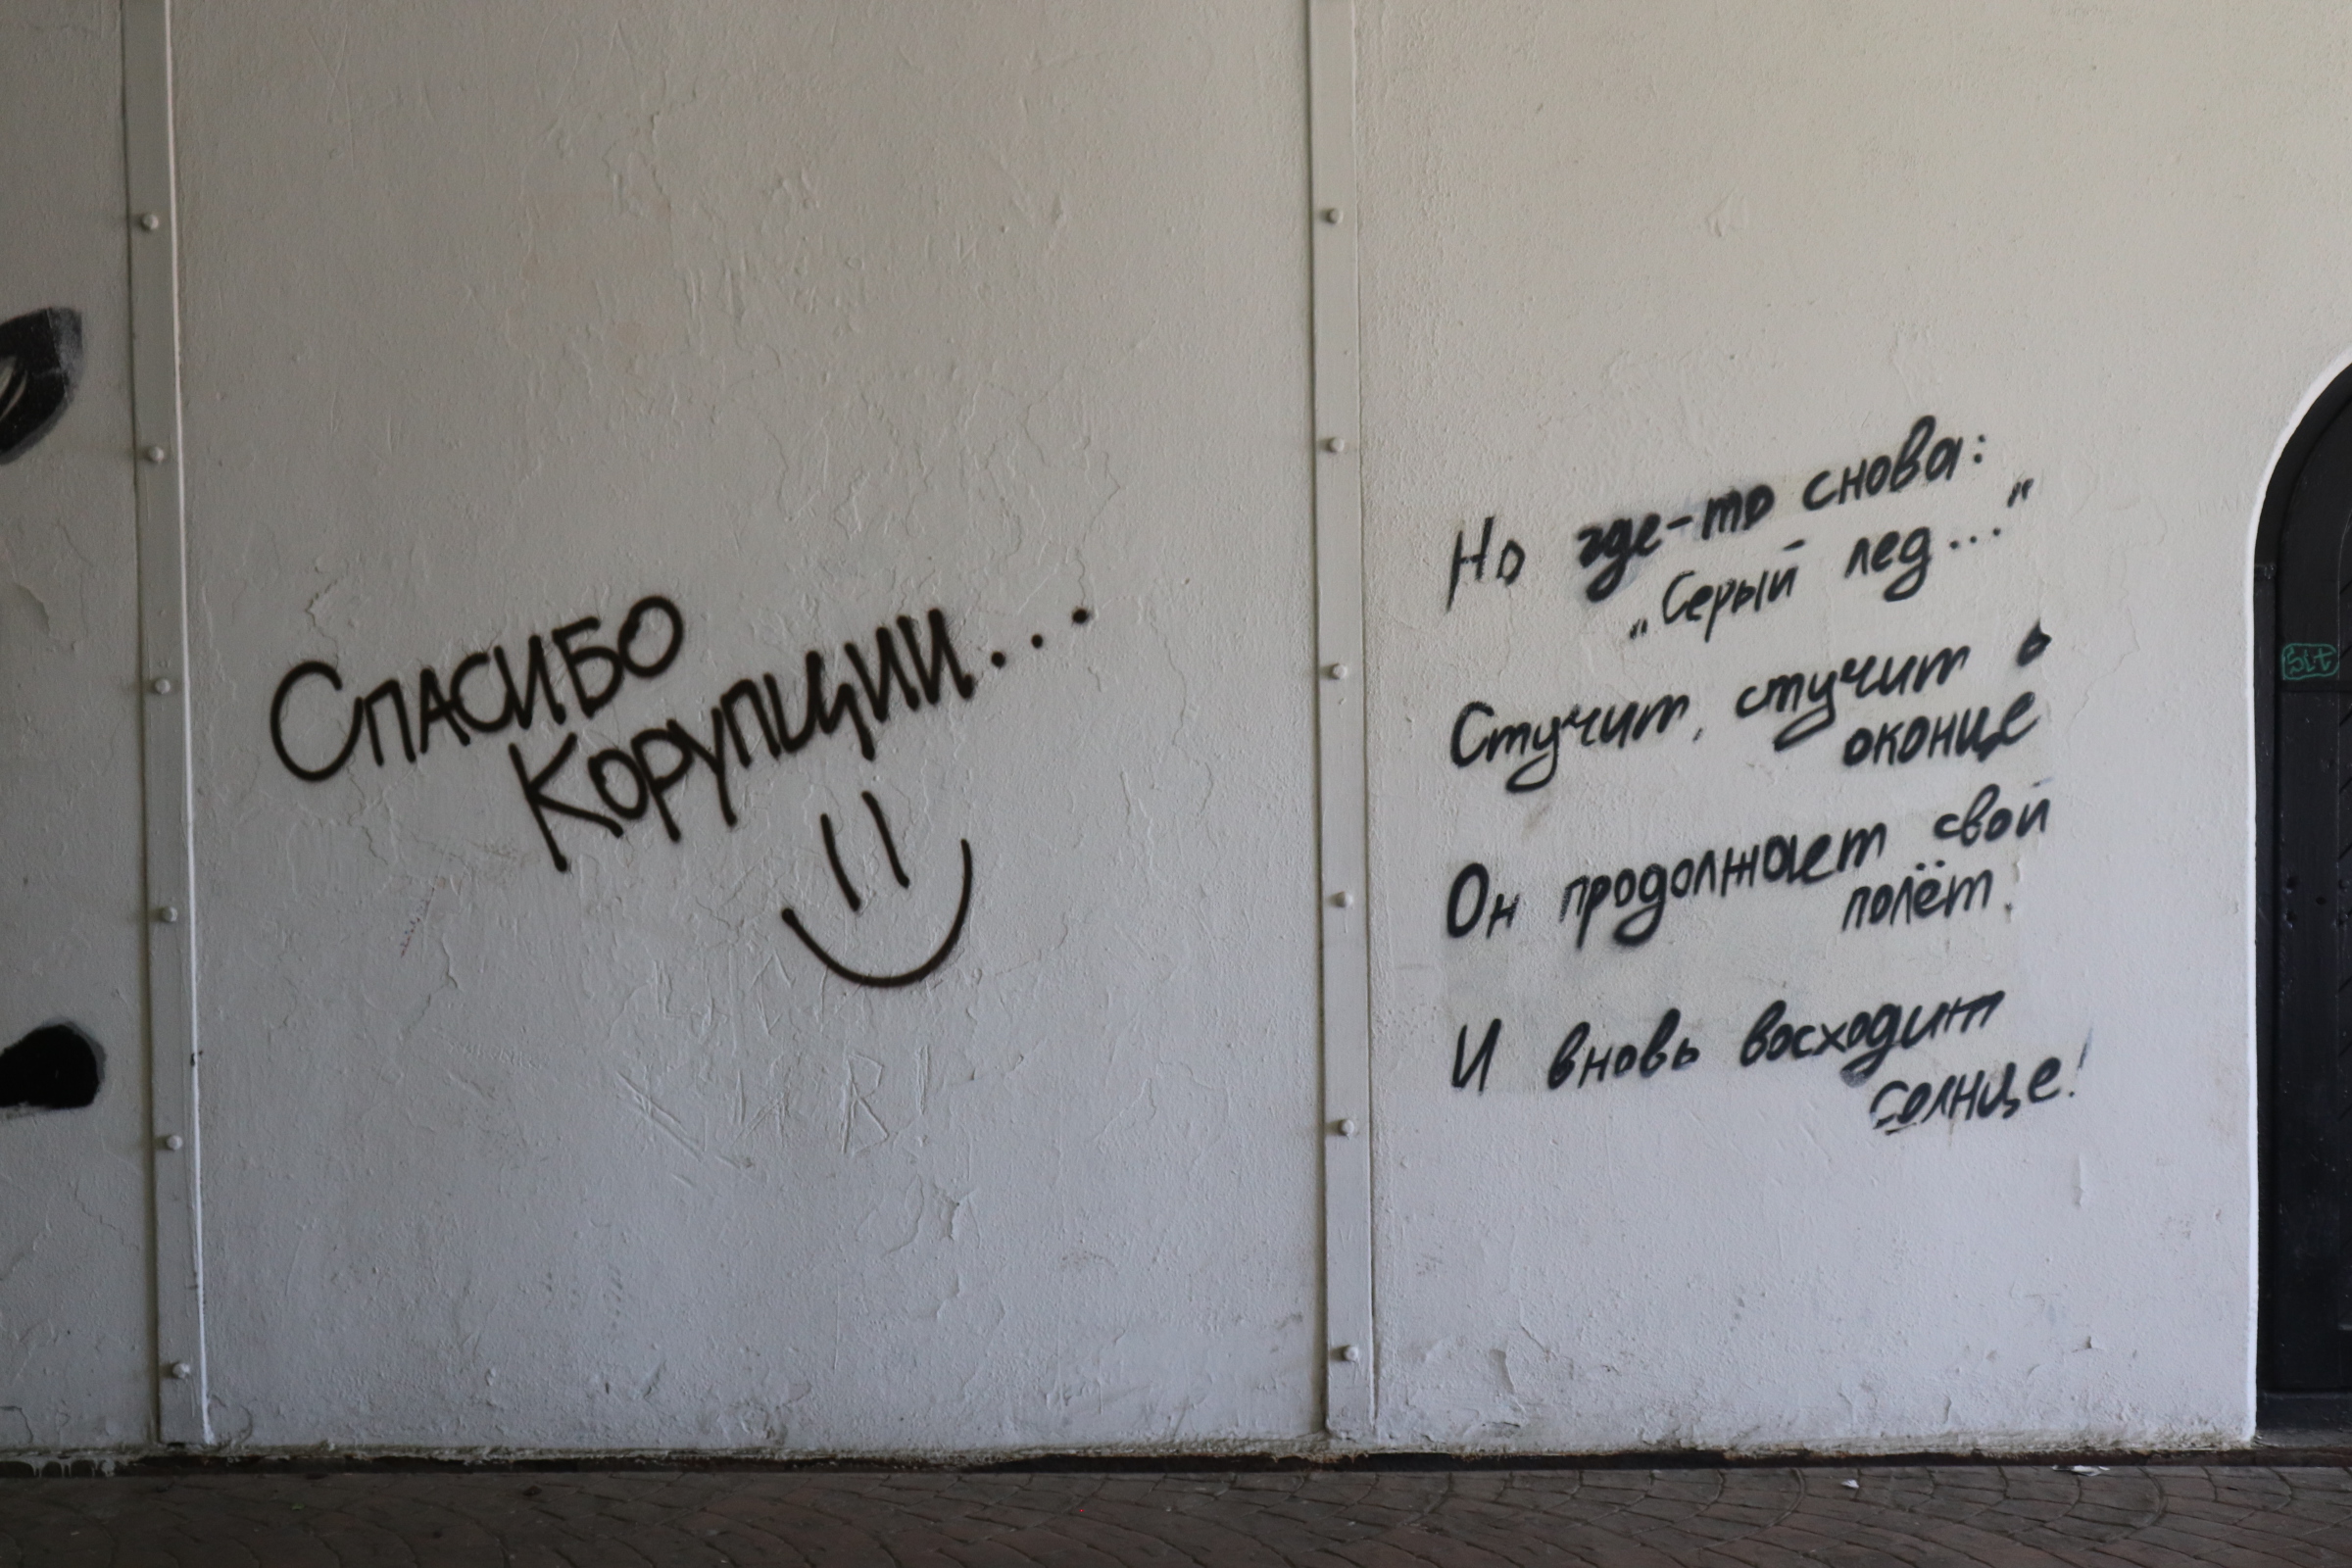 Спасибо
Корупции...
Но где-то снова:
„Серый лед..."
Стучит, стучит о
оконце
Он продолжает свой
полёт.
И вновь восходит
солнце!